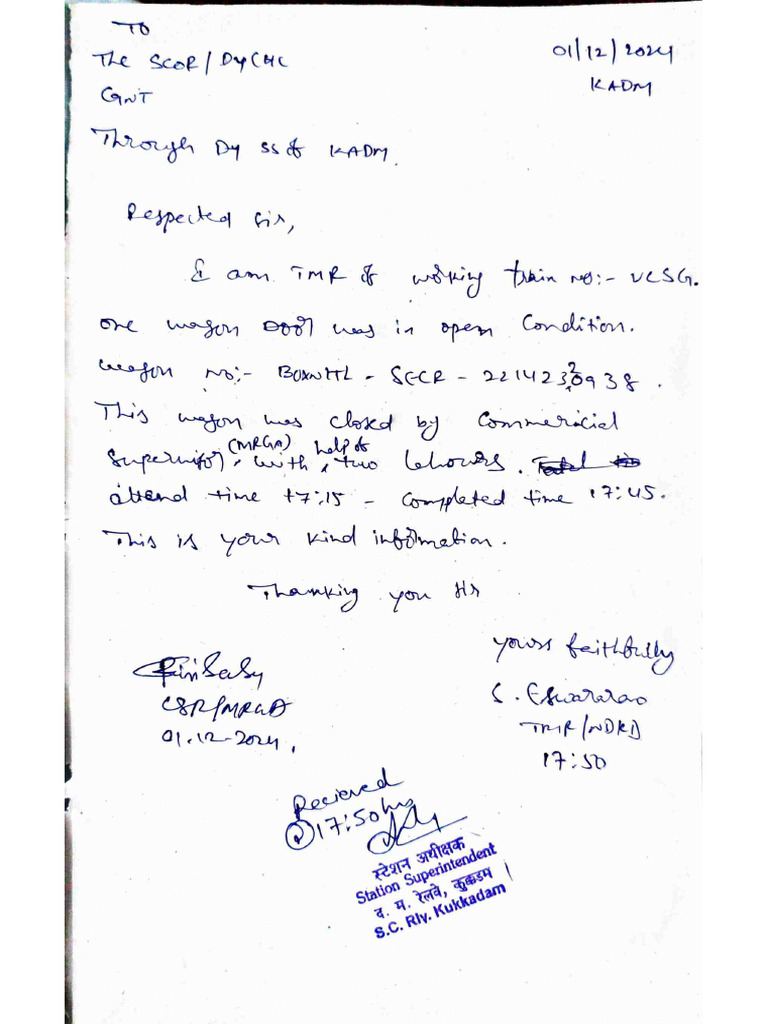 To
The SCOR/DyCHC
GNT
01/12/2024
KADM
Through Dy SS of KADM.
Respected Sir,
I am TMR of working train no:- VCSG.
one wagon door was in open Condition.
wagon no:- BOXNHL - SECR - 22142320938.
This wagon was closed by Commericial
Supervisor (MRGA), with help of two labours.
attend time 17:15 - completed time 17:45.
This is your kind information.
Thanking you sir
Yours faithfully
S. Eswararao
TMR/NDKD
17:50
CSR/MRGA
01.12-2024,
Recieved
@ 17:50 hrs
स्टेशन अधीक्षक
Station Superintendent
द. म. रेलवे, कुक्कडम
S.C. Rly. Kukkadam